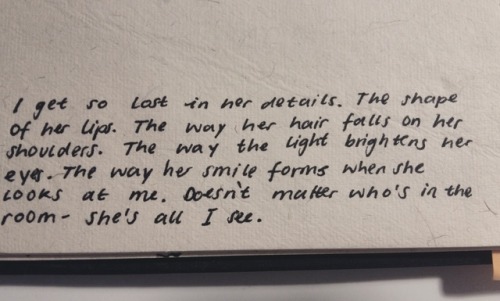 I get so lost in her details. The shape
of her lips. The way her hair falls on her
shoulders. The way the light brightens her
eyes. The way her smile forms when she
looks at me. Doesn't matter who's in the
room- she's all I see.